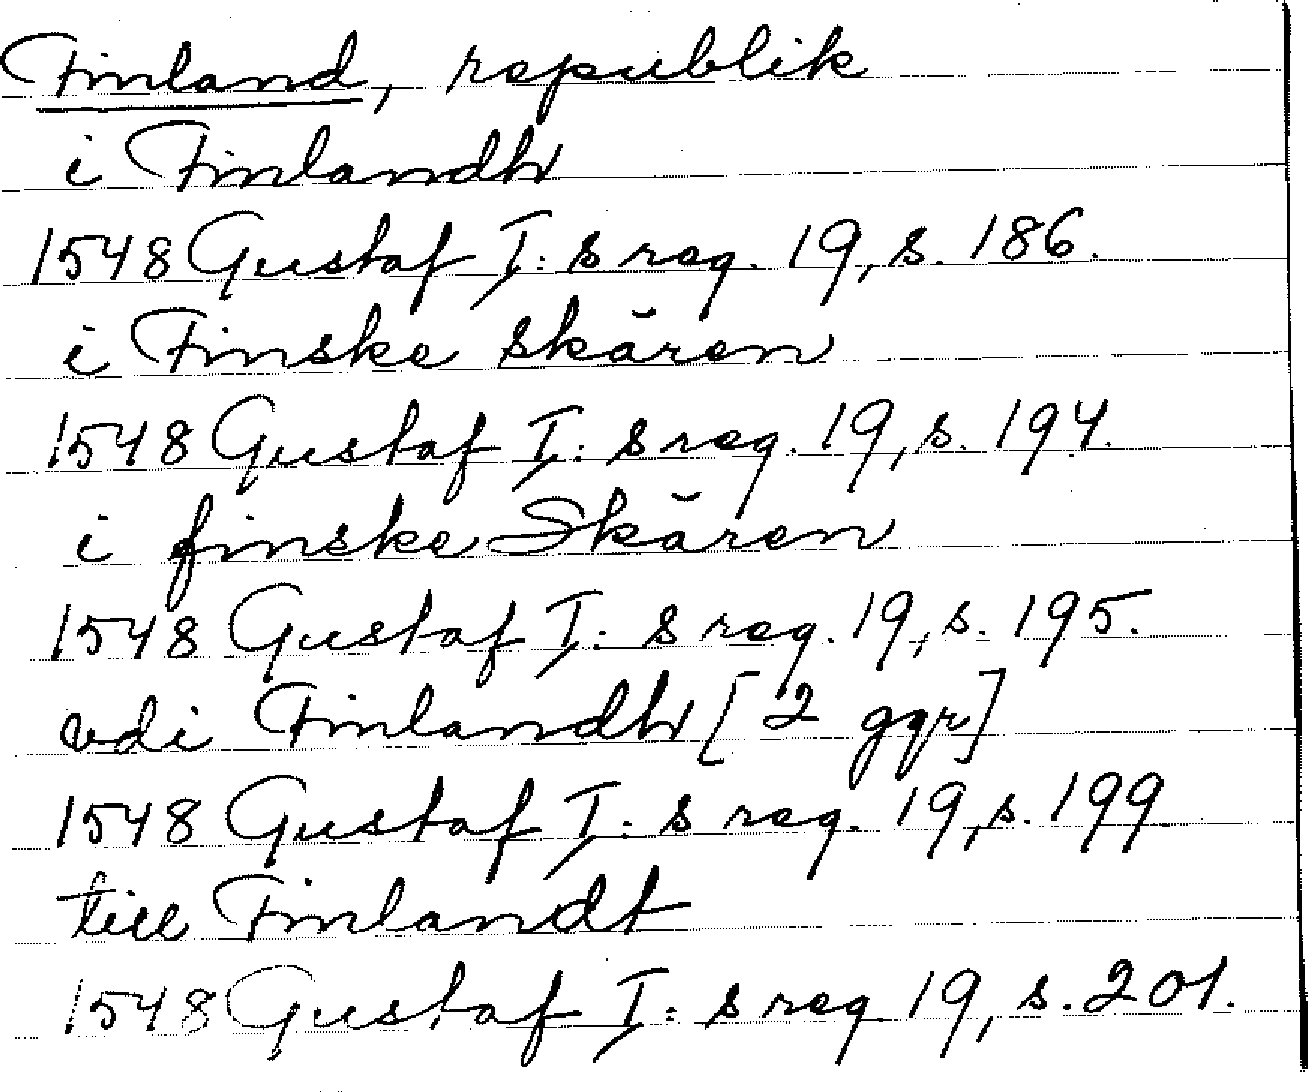 Finland, republik
i Finlandh
1548 Gustaf I: s reg. 19, s. 186.
i Finske skären
1548 Gustaf I: s reg. 19, s. 194.
i finske Skären
1548 Gustaf I: s reg. 19, s. 195.
vdi Finlandh [2 ggr]
1548 Gustaf I: s reg. 19, s. 199
till Finlandt
1548 Gustaf I: s reg 19, s. 201.